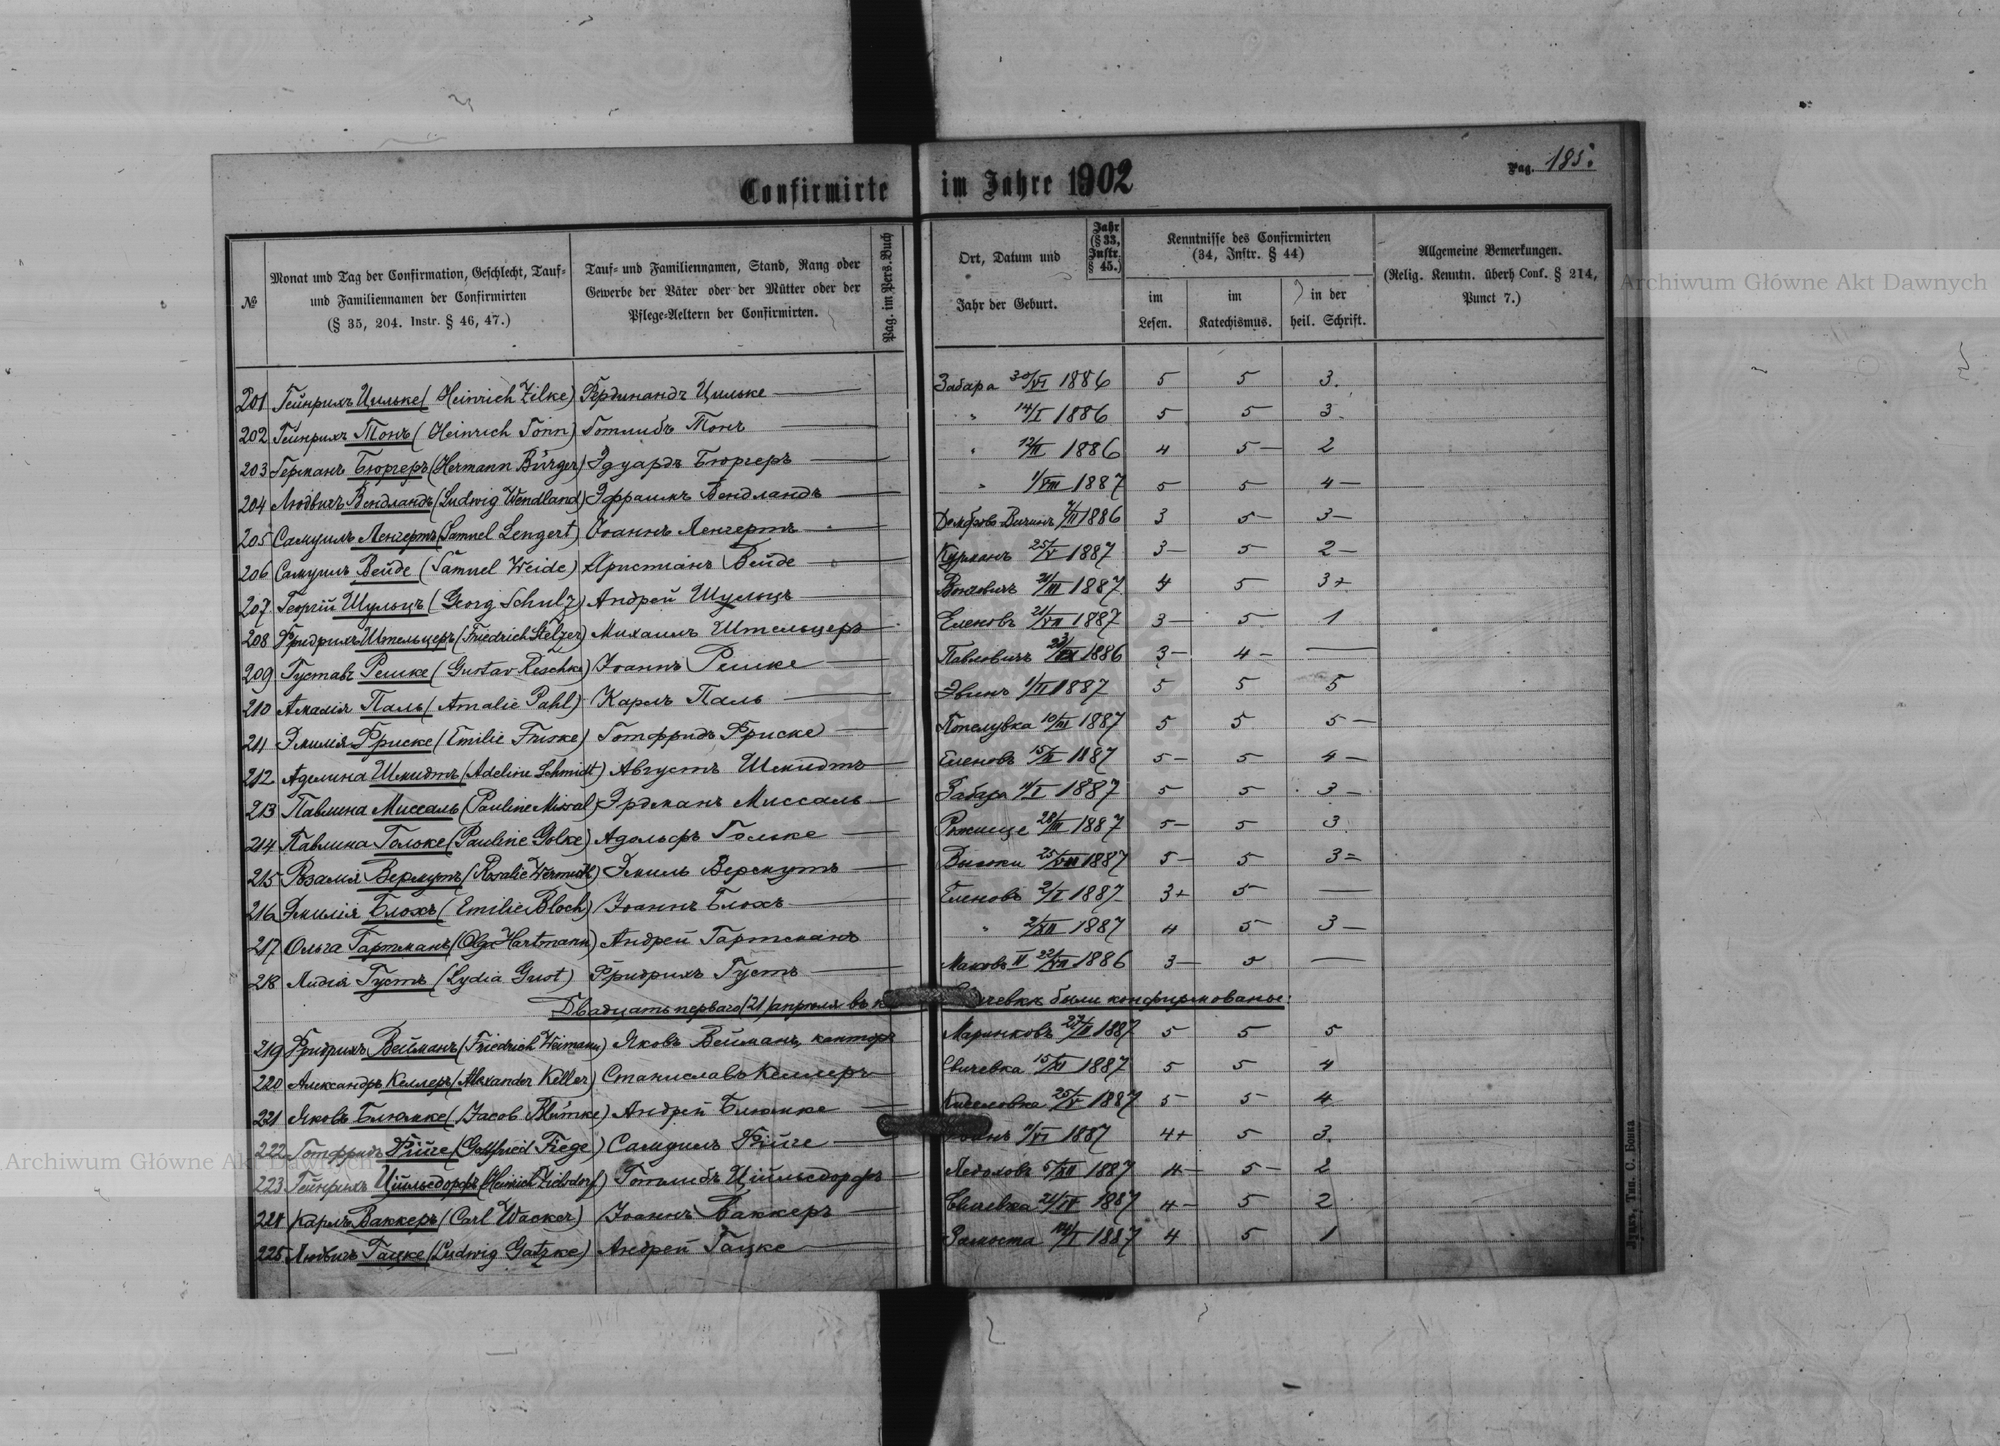 Confirmirte im Jahre 1902
Pag. 185.
№
Monat und Tag der Confirmation, Geschlecht, Tauf-
und Familiennamen der Confirmirten
(§ 35, 204. Instr. § 46, 47.)
Tauf- und Familiennamen, Stand, Rang oder
Gewerbe der Väter oder der Mütter oder der
Pflege-Aeltern der Confirmirten.
Pag. im Pers.Buch
Ort, Datum und
Jahr der Geburt.
Jahr
(§ 33,
Instr.
§ 45.)
Kenntnisse des Confirmirten
(34, Instr. § 44)
im
Lesen.
im
Katechismus.
in der
heil. Schrift.
Allgemeine Bemerkungen.
(Relig. Kenntn. überh Conf. § 214,
Punct 7.)
201 Гейнрихъ Цильке (Heinrich Zilke) Фердинандъ Цильке Забара 30/VI 1886 5 5 3.
202 Гейнрихъ Тонъ (Heinrich Tonn) Готлибъ Тонъ " 14/I 1886 5 5 3
203 Германъ Бюргеръ (Hermann Bürger) Эдуардъ Бюргеръ " 1886 4 5 2
204 Людвихъ Вендландъ (Ludwig Wendland) Эфраимъ Вендландъ " 1/VIII 1887 5 5 4
205 Самуилъ Ленгертъ (Samuel Lengert) Іоаннъ Ленгертъ 1886 3 5 3
206 Самуилъ Вейде (Samuel Weide) Христіанъ Вейде 25/V 1887 3 5 2
207 Георгій Шульцъ (Georg Schulz) Андрей Шульцъ 1887 4 5 3+
208 Фридрихъ Штельцеръ (Friedrich Stelzer) Михаилъ Штельцеръ Еленовъ 1887 3 5 1
209 Густавъ Решке (Gustav Reschke) Іоаннъ Решке Павловичъ 1886 3 4 —
210 Амалія Паль (Amalie Pahl) Карлъ Паль 1887 5 5 5
211 Эмилія Фриске (Emilie Friske) Готфридъ Фриске 1887 5 5 5
212 Аделина Шмидтъ (Adeline Schmidt) Августъ Шмидтъ Еленовъ 1887 5 5 4
213 Павлина Миссаль (Pauline Missal) Эрдманъ Миссаль Забара 1887 5 5 3
214 Павлина Гольке (Pauline Golke) Адольфъ Гольке Рожище 28/III 1887 5 5 3
215 Розалія Вермутъ (Rosalie Wermuth) Эмиль Вермутъ 1887 5 5 3
216 Эмилія Блохъ (Emilie Bloch) Іоаннъ Блохъ Еленовъ 2/I 1887 3+ 5 —
217 Ольга Гартманъ (Olga Hartmann) Андрей Гартманъ " 1887 4 5 3
218 Лидія Густъ (Lydia Gust) Фридрихъ Густъ Маковъ II 1886 3 5 —
Двадцать перваго (21) апрѣля въ были конфирмованы:
219 Фридрихъ Вейманъ (Friedrich Weimann) Яковъ Вейманъ, канторъ Маринковъ 1887 5 5 5
220 Александръ Келлеръ (Alexander Keller) Станиславъ Келлеръ 1887 5 5 4
221 Яковъ Блюмке (Jacob Blümke) Андрей Блюмке 25/V 1887 5 5 4
222 Готфридъ Фиге (Gottfried Fiege) Самуилъ Фиге 1887 4+ 5 3
223 Гейнрихъ Цильсдорфъ (Heinrich Zielsdorf) Готлибъ Цильсдорфъ 1887 4 5 2
224 Карлъ Ваккеръ (Carl Wacker) Іоаннъ Ваккеръ 1887 4 5 2
225 Людвихъ Гацке (Ludwig Gatzke) Андрей Гацке 1887 4 5 1
Луцкъ, Тип. С. Бонка
Archiwum Główne Akt Dawnych
Archiwum Główne Akt Dawnych